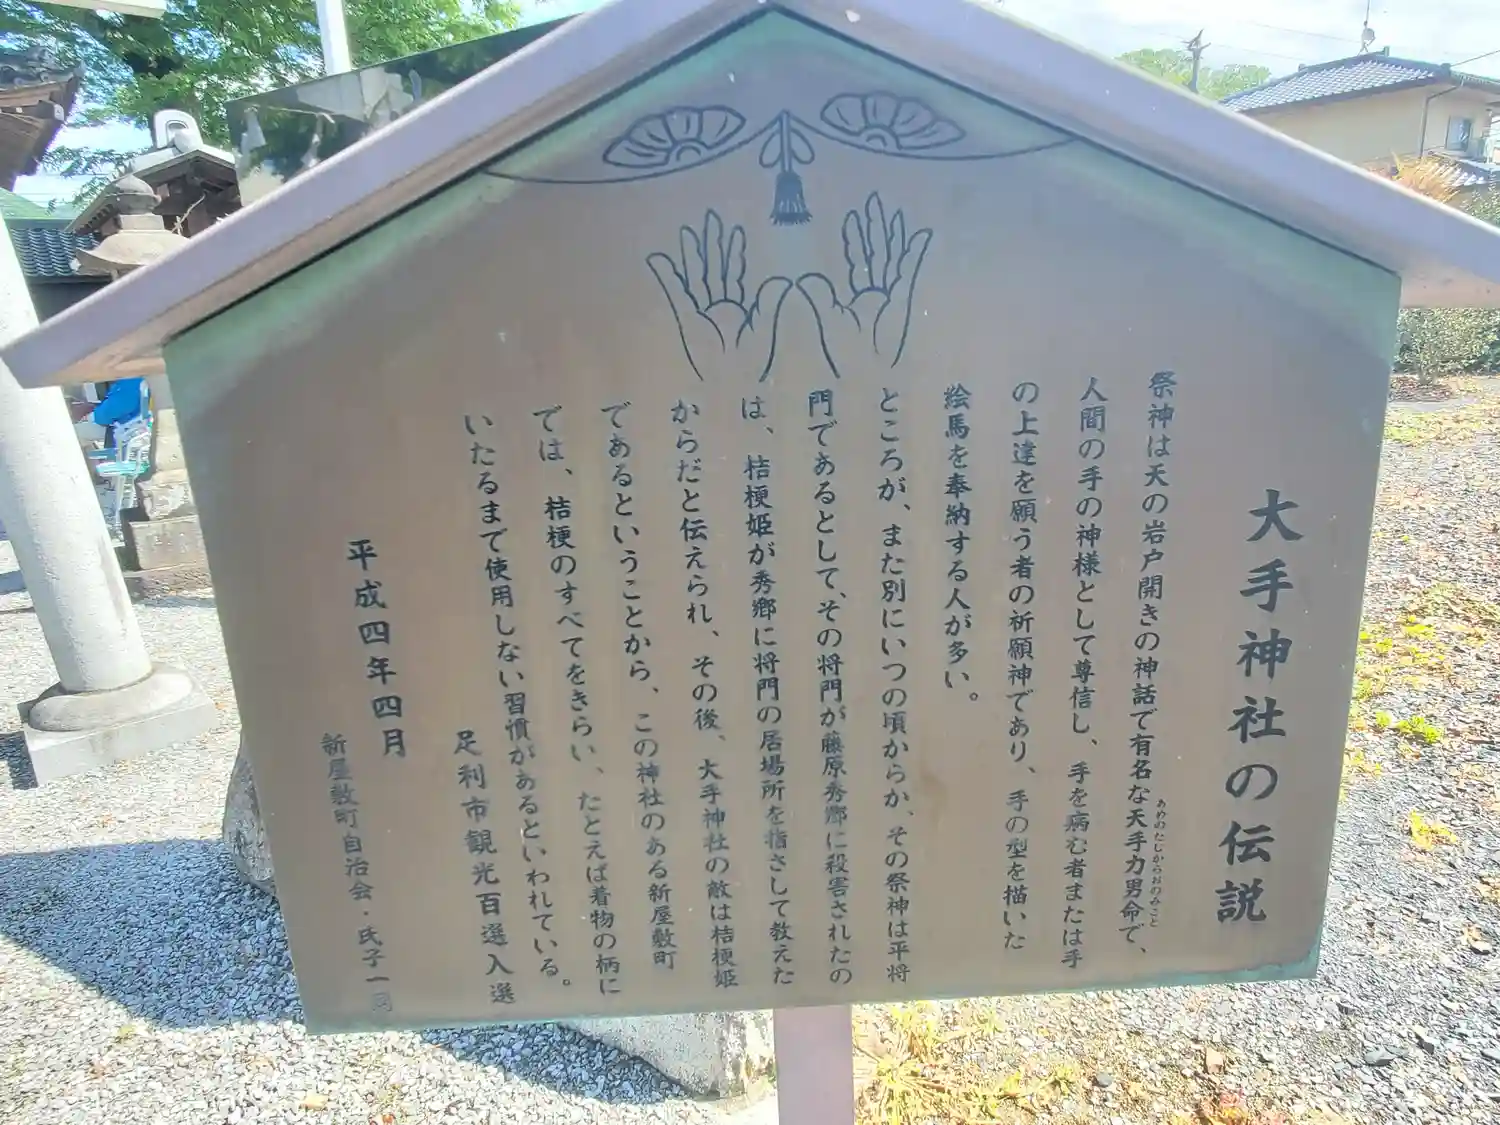 大手神社の伝説
祭神は天の岩戸開きの神話で有名な天手力男命で、
あめのたじからおのみこと
人間の手の神様として尊信し、手を病む者または手
の上達を願う者の祈願神であり、手の型を描いた
絵馬を奉納する人が多い。
ところが、また別にいつの頃からか、その祭神は平将
門であるとして、その将門が藤原秀郷に殺害されたの
は、桔梗姫が秀郷に将門の居場所を指さして教えた
からだと伝えられ、その後、大手神社の敵は桔梗姫
であるということから、この神社のある新屋敷町
では、桔梗のすべてをきらい、たとえば着物の柄に
いたるまで使用しない習慣があるといわれている。
足利市観光百選入選
平成四年四月
新屋敷町自治会・氏子一同